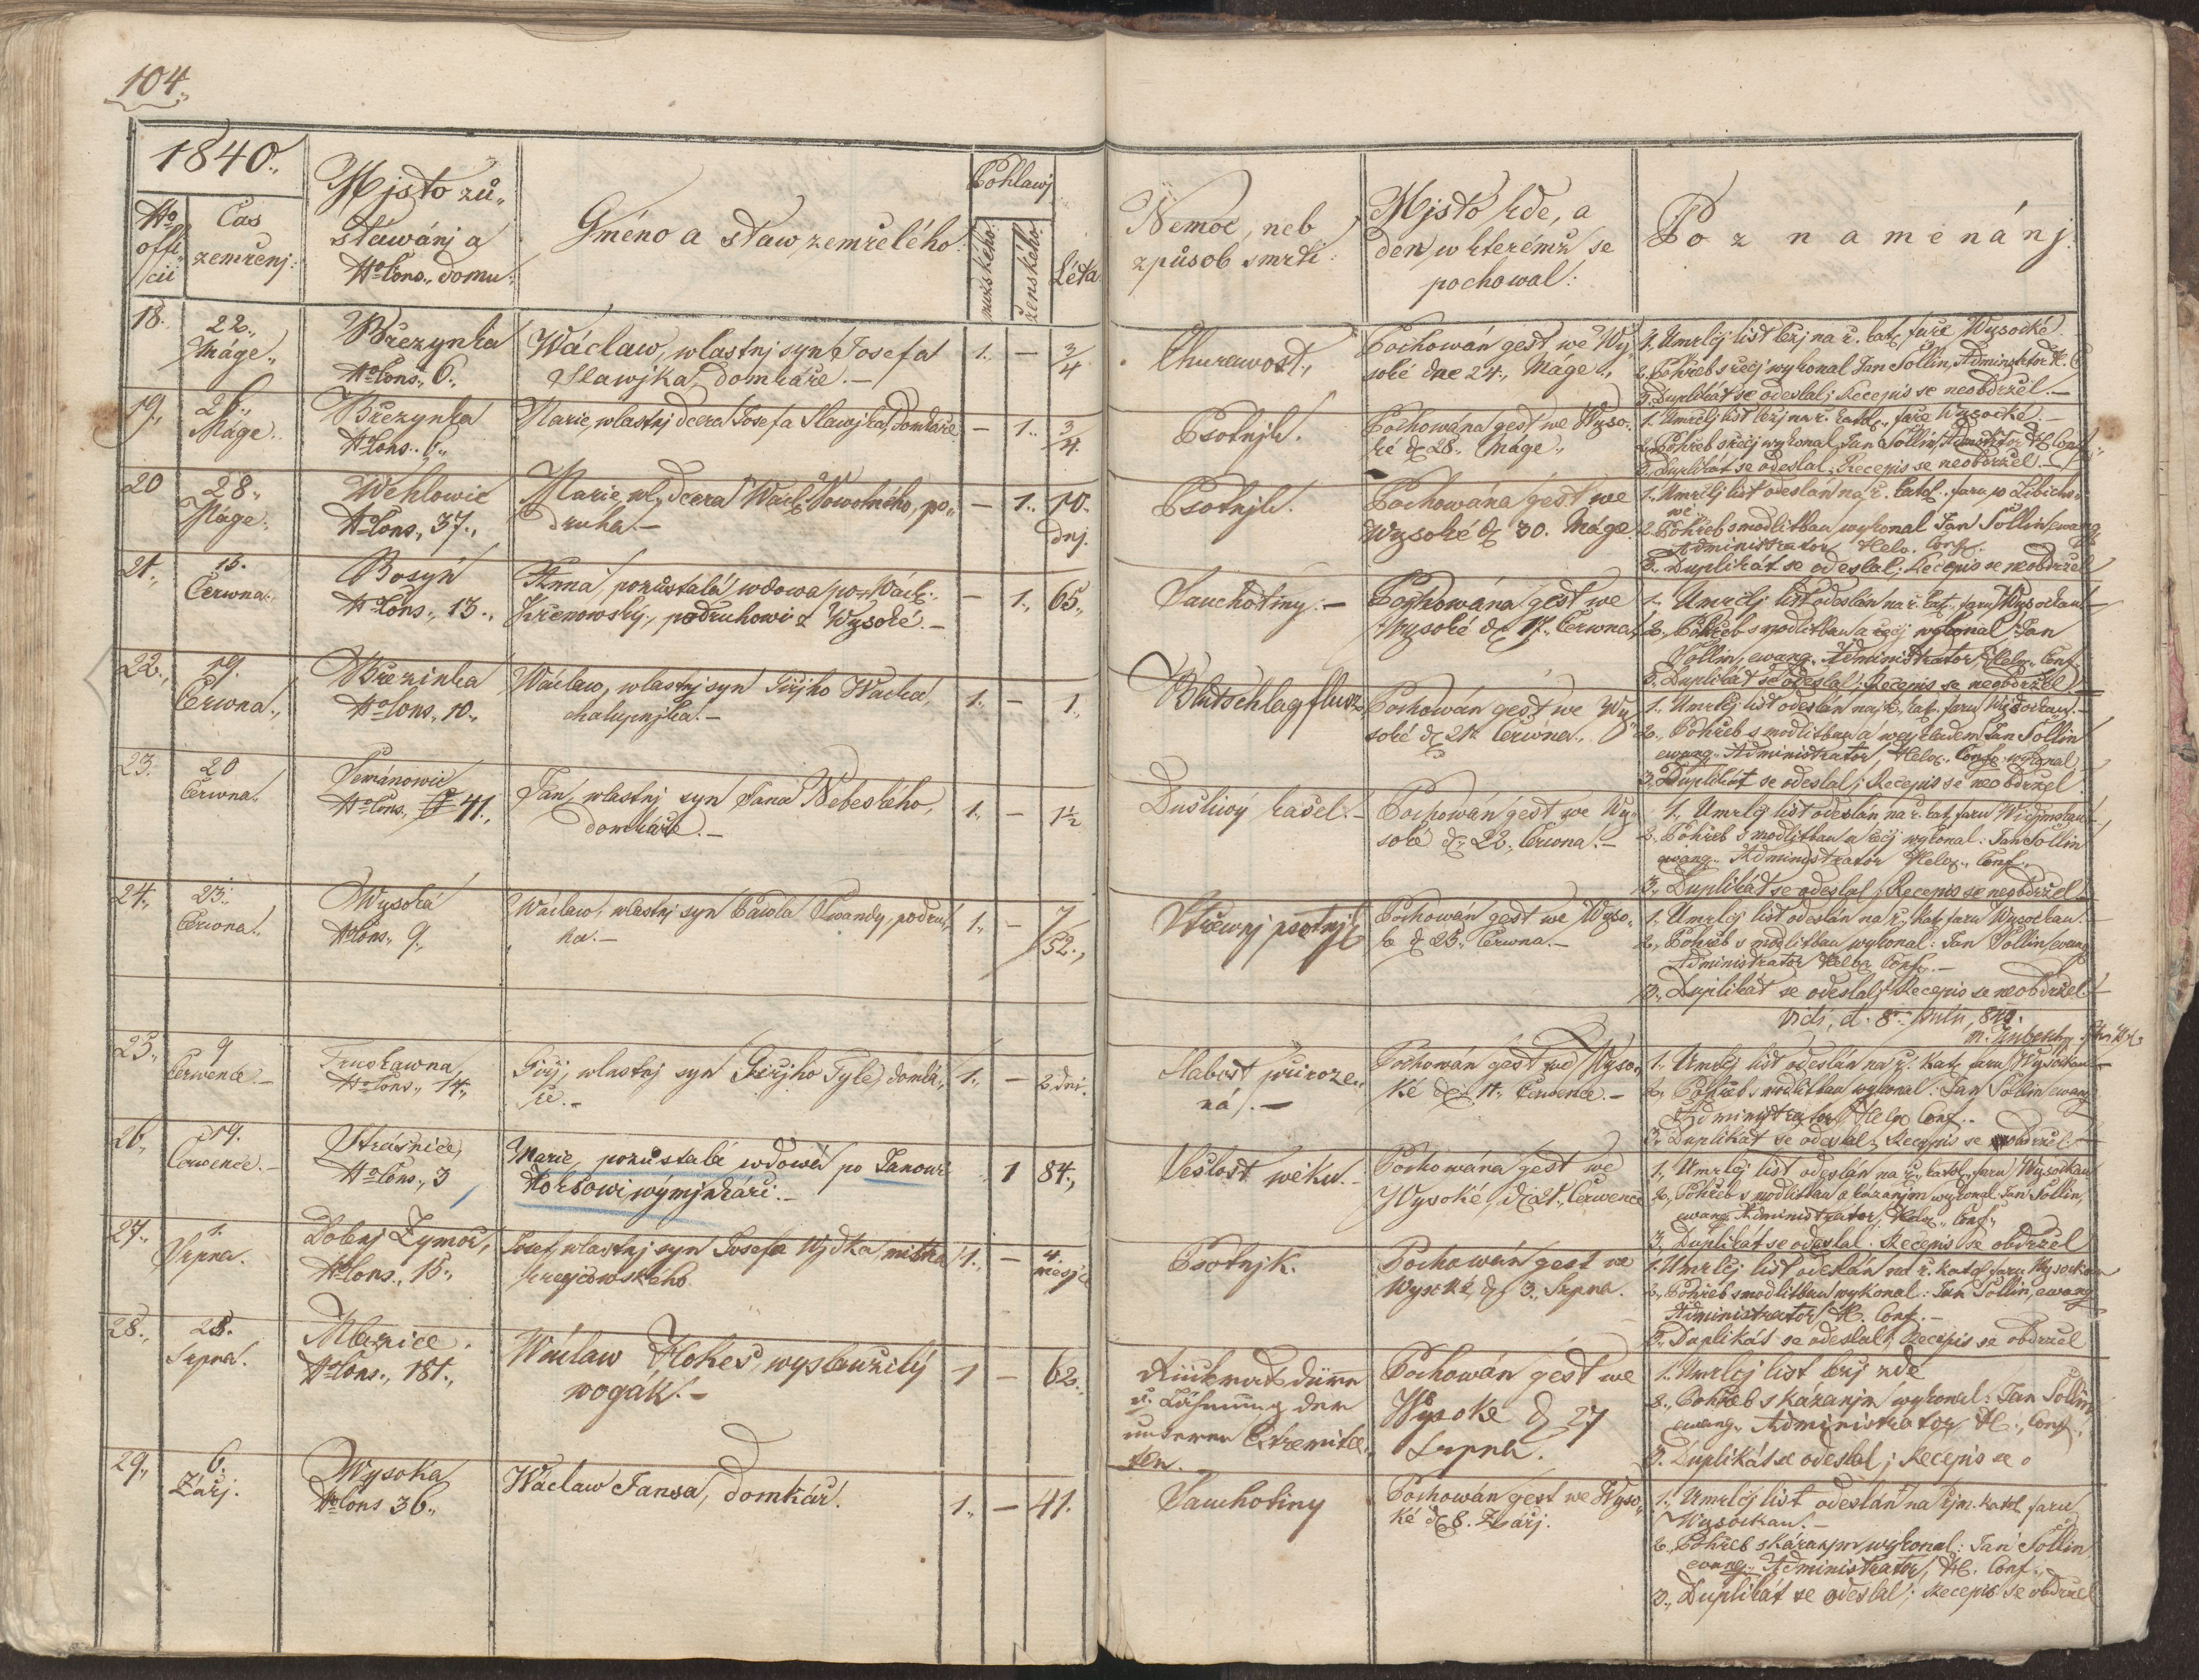 104.
1840.,
No offi cii
Čas zemřenj:
Mjsto zů„
stáwánj a
No Cons., domu.
Gméno a staw zemřelého.
Pohlawj
mužského.
ženského.
Léta
Nemoc, neb
způsob smrti:
Mjsto kde, a
den, w kterémž se
pochowal:
Poznamenánj.
18.
22.,
Máge„
Březynka
No Cons., 6.,
Wáclaw, wlastnj syn Josefa
Slawjka, domkáře.—
1. — 3/4
Churawost.,
Pochowán gest we Wy„
soké dne 24., Máge„
1. Umrlčj list ležj na ř. kat. faře Wysocké.
2. Pohřeb s řečj wykonal Jan Sollin, Administrátor H. C.
3. Duplikát se odeslal; Recepis se neobdržel.—
19.,
Máge.
Březynka
No Cons. 6.,
Marie, wlastnj dcera Josefa Slawjka, domkáře
— 1. 3/4
Psotnjk.
Pochowána gest we Wyso„
ké d. 28., Máge„
1. Umrlčj list ležj na ř. katol., faře Wysocké.—
2. Pohřeb s řečj wykonal Jan Sollin, Administrátor H. Conf.
3. Duplikát se odeslal; Recepis se neobdržel.—
20
28„
Máge.
Wehlowic
No Cons., 37.,
Marie, wl. dcera Wácl. Nowotného, po„
druha.—
— 1. 10.
dnj.
Psotnjk.
Pochowána gest we
Wysoké d. 30. Máge.
1. Umrlčj list odeslán na ř. katol. faru w Libicho
wě.
2. Pohřeb s modlitbau wykonal Jan Sollin, ewang.
Administrátor, Helv. Conf.
3., Duplikát se odeslal; Recepis se neobdržel
21.,
15.
Čerwna.
Bosyň
No Cons., 13.,
Anna, pozůstalá wdowa po Wácl.
Křenowský, podruhowi z Wysoké.—
— 1., 65.,
Sauchotiny.—
Pochowána gest we
Wysoké d. 17., Čerwna.
1. Umrlčj list odeslán na ř. kat. faru Wysockau.—
2., Pohřeb s modlitbau a řečj wykonal Jan
Sollin, ewang. Administrátor, Helv. Conf.
3., Duplikát se odeslal; Recepis se neobdržel
22.,
19.
Čerwna.,
Březinka
No Cons., 10.,
Wáclaw, wlastnj syn Jiřjho Wacka,
chalupnjka.—
1., — 1.,
Blutschlagfluss.
Pochowán gest we Wy„
soké d. 21. Čerwna.,
1. Umrlčj list odeslán na ř. kat. faru Wysockau.—
2., Pohřeb s modlitbau a weykladem Jan Sollin
ewang. Administrátor, Helv. Conf. wykonal
3. Duplikát se odeslal; Recepis se neobdržel.
23.
20
Čerwna.
No Cons., 41.,
Jan, wlastnj syn Jana Nebeského,
domkáře.—
1., — 1½
Dušliwý kašel.—
Pochowán gest we Wy„
soké d. 22., Čerwna.—
1., Umrlčj list odeslán na ř. kat. faru
2., Pohřeb s modlitbau a řečj wykonal: Jan Sollin
ewang. Administrátor Helv., Conf.
3., Duplikát se odeslal; Recepis se neobdržel.
24.,
23.
Čerwna.
Wysoká
No Cons., 9.,
Wáclaw, wlastnj syn Pawla Kwandy, podru„
ha.—
1., — 7/52.,
Střewnj psotnjk
Pochowán gest we Wyso„
ké d. 25., Čerwna.—
1., Umrlčj list odeslán na ř. kat. faru Wysockau.—
2., Pohřeb s modlitbau wykonal: Jan Sollin, ewang.
Administrátor, Helv. Conf.—
3., Duplikát se odeslal; Recepis se neobdržel.—
Vidi, d. 8 840.
25.,
9
Čerwence.—
Truskawna
No Cons., 14.,
Jiřj, wlastnj syn Jiřjho Tyle, domká„
ře.—
1., — 2. dni.
Slabost přiroze„
ná.—
Pochowán gest we Wyso„
ké d. 11., Čerwence.—
1., Umrlčj list odeslán na ř. kat. faru Wysockau.—
2., Pohřeb s modlitbau wykonal: Jan Sollin, ewang.
Administrátor, Helv. Conf.
3., Duplikát se odeslal; Recepis se obdržel.—
26.,
19.
Čerwence.—
Strážnice,
No Cons., 3
Marie, pozůstalá wdowa po Janowi
Horbowi, wýminkáři.—
1 84.,
Sešlost wěku.—
Pochowána gest we
Wysoké, d. 21., Čerwence
1., Umrlčj list odeslán na ř. katol. faru Wysockau
2., Pohřeb s modlitbau a kázanjm wykonal Jan Sollin,
ewang. Administrátor, Helv., Conf.,
3., Duplikát se odeslal. Recepis se obdržel
27.,
1.
Srpna.
Dolenj Zymoř,
No Cons., 15.,
Josef, wlastnj syn Josefa Wjdka, mistra
kregčowského
1., — 4.
měsjce
Psotnjk.
Pochowán gest we
Wysoké, d. 3., Srpna.
1. Umrlčj list odeslán na ř. katol. faru Wysockau
2., Pohřeb s modlitbau wykonal: Jan Sollin, ewang.
Administrátor, H. Conf.—
3., Duplikát se odeslal; Recepis se obdržel
28.,
25.
Srpna.
Mlazice.
No Cons., 181.,
Wáclaw Flokes, wysloužilý
wogák.—
1 — 62.,
Rückmarksdürre
u. Lähmung der
unteren Extremitä„
ten.
Pochowán gest we
Wysoké d. 27
Srpna.
1. Umrlčj list ležj zde
2., Pohřeb s kázanjm wykonal: Jan Sollin,
ewang. Administrátor H., Conf.,
3. Duplikát se odeslal; Recepis se o
29.,
6.
Zářj.
Wysoka
No Cons 36.,
Wáclaw Jansa, domkář.
1., — 41.
Sauchotiny
Pochowán gest we Wyso„
ké d. 8. Zářj.
1., Umrlčj list odeslán na řjm. katol. faru
Wysockau.—
2., Pohřeb s kázanjm wykonal: Jan Sollin,
ewang. Administrátor, H. Conf.,
3., Duplikát se odeslal; Recepis se obdržel